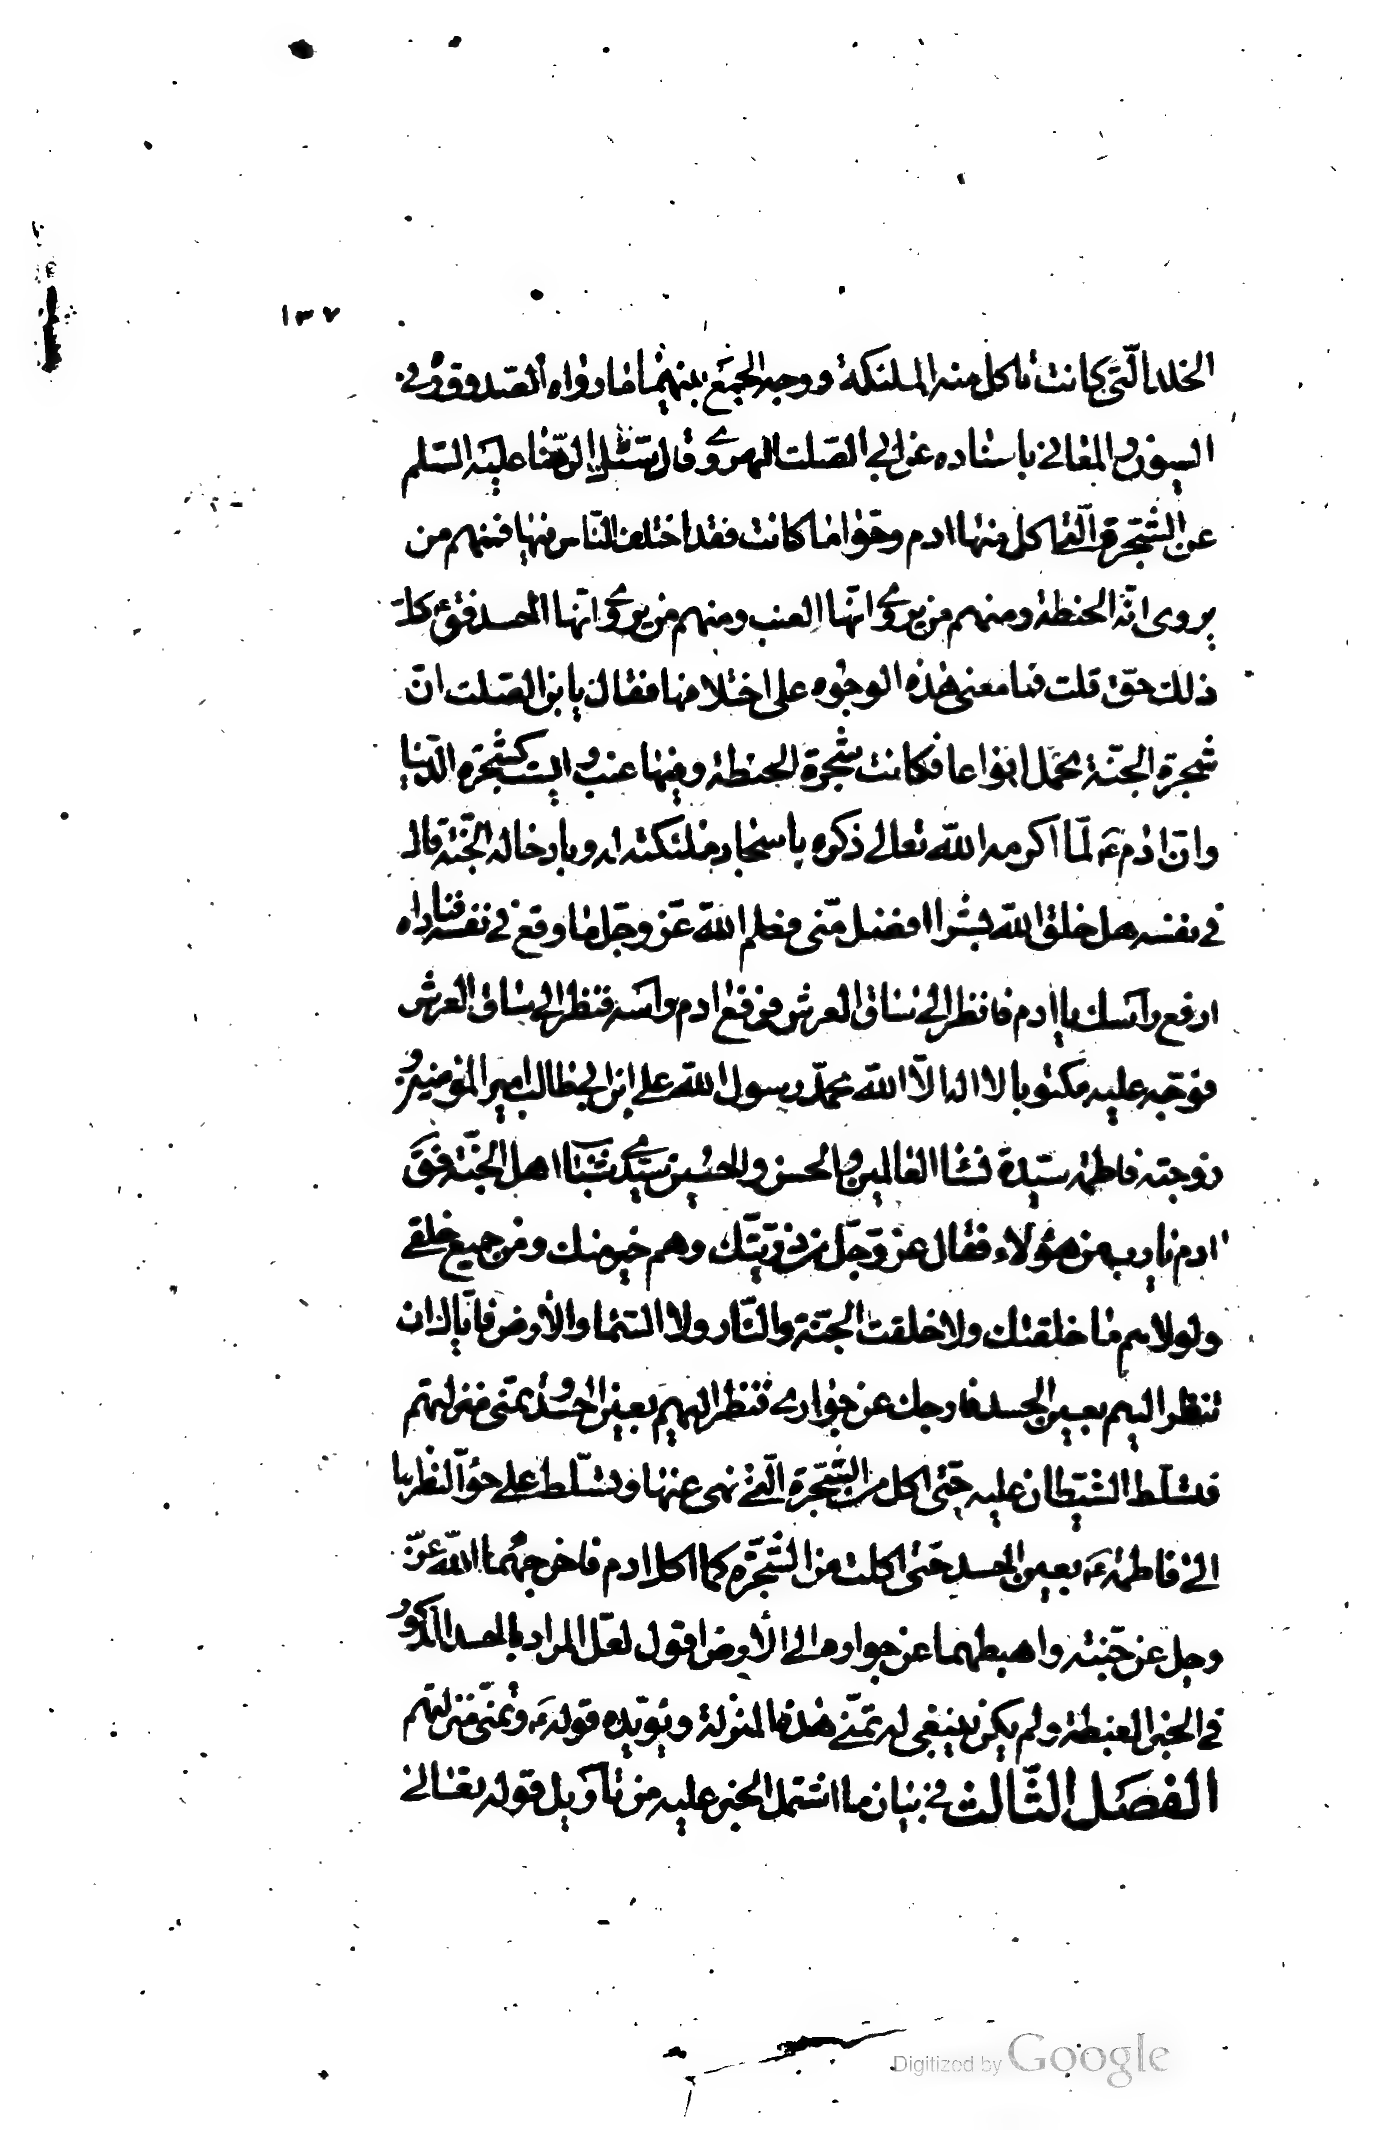 ١٣٧
الخلد التي كانت تاكل منه الملئكة ووجه الجمع بينهما ما رواه الصدوق في
العيون والمعاني باسناده عن ابي الصلت الهروي قال سئل الرضا عليه السلم
عن الشجرة التي اكل منها ادم وحوا ما كانت فقد اختلف الناس فيها فمنهم من
يروى انه الحنطة ومنهم من يروي انها العنب ومنهم من يروي انها الحسد فق ع كل
ذلك حق قلت فما معنى هذه الوجوه على اختلافها فقال يا بن الصلت ان
شجرة الجنة تحمل انواعا فكانت شجرة الحنطة وفيها عنب وليست كشجرة الدنيا
وان ادم ع لما اكرمه الله تعالى ذكره باسجاد ملئكته له وبادخاله الجنة قال
في نفسه هل خلق الله بشرا افضل مني فعلم الله عز وجل ما وقع في نفسه فناداه
ارفع رأسك يا ادم فانظر الى ساق العرش فرفع ادم رأسه فنظر الى ساق العرش
فوجد عليه مكتوبا لا اله الا الله محمد رسول الله علي ابن ابي طالب امير المؤمنين و
زوجته فاطمة سيدة نساء العالمين والحسن والحسين سيدي شباب اهل الجنة فق
ادم يا رب من هؤلاء فقال عز وجل من ذريتك وهم خير منك ومن جميع خلقي
ولولاهم ما خلقتك ولا خلقت الجنة والنار ولا السماء والأرض فاياك ان
تنظر اليهم بعين الحسد فاخرجك عن جواري فنظر اليهم بعين الحسد وتمنى منزلتهم
فتسلط الشيطان عليه حتى اكل من الشجرة التي نهى عنها وتسلط على حوا لنظرها
الى فاطمة ع بعين الحسد حتى اكلت من الشجرة كما اكل ادم فاخرجهما الله عز
وجل عن جنته واهبطهما عن جواره الى الأرض اقول لعل المراد بالحسد المذكور
في الخبر الغبطة ولم يكن ينبغي له تمني هذه المنزلة ويؤيده قوله ع وتمنى منزلتهم
الفصل الثالث في بيان ما اشتمل الخبر عليه من تأويل قوله تعالى
Digitized by Google